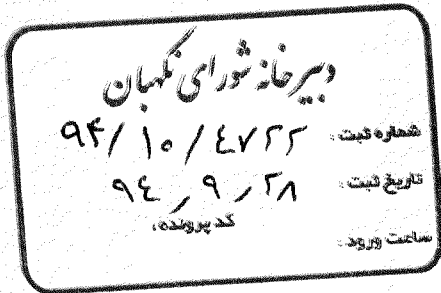 دبیرخانه شورای نگهبان
شماره ثبت: ۹۴/۱۰/۴۷۲۲
تاریخ ثبت: ۹۴/۹/۲۸
کد پرونده:
ساعت ورود: